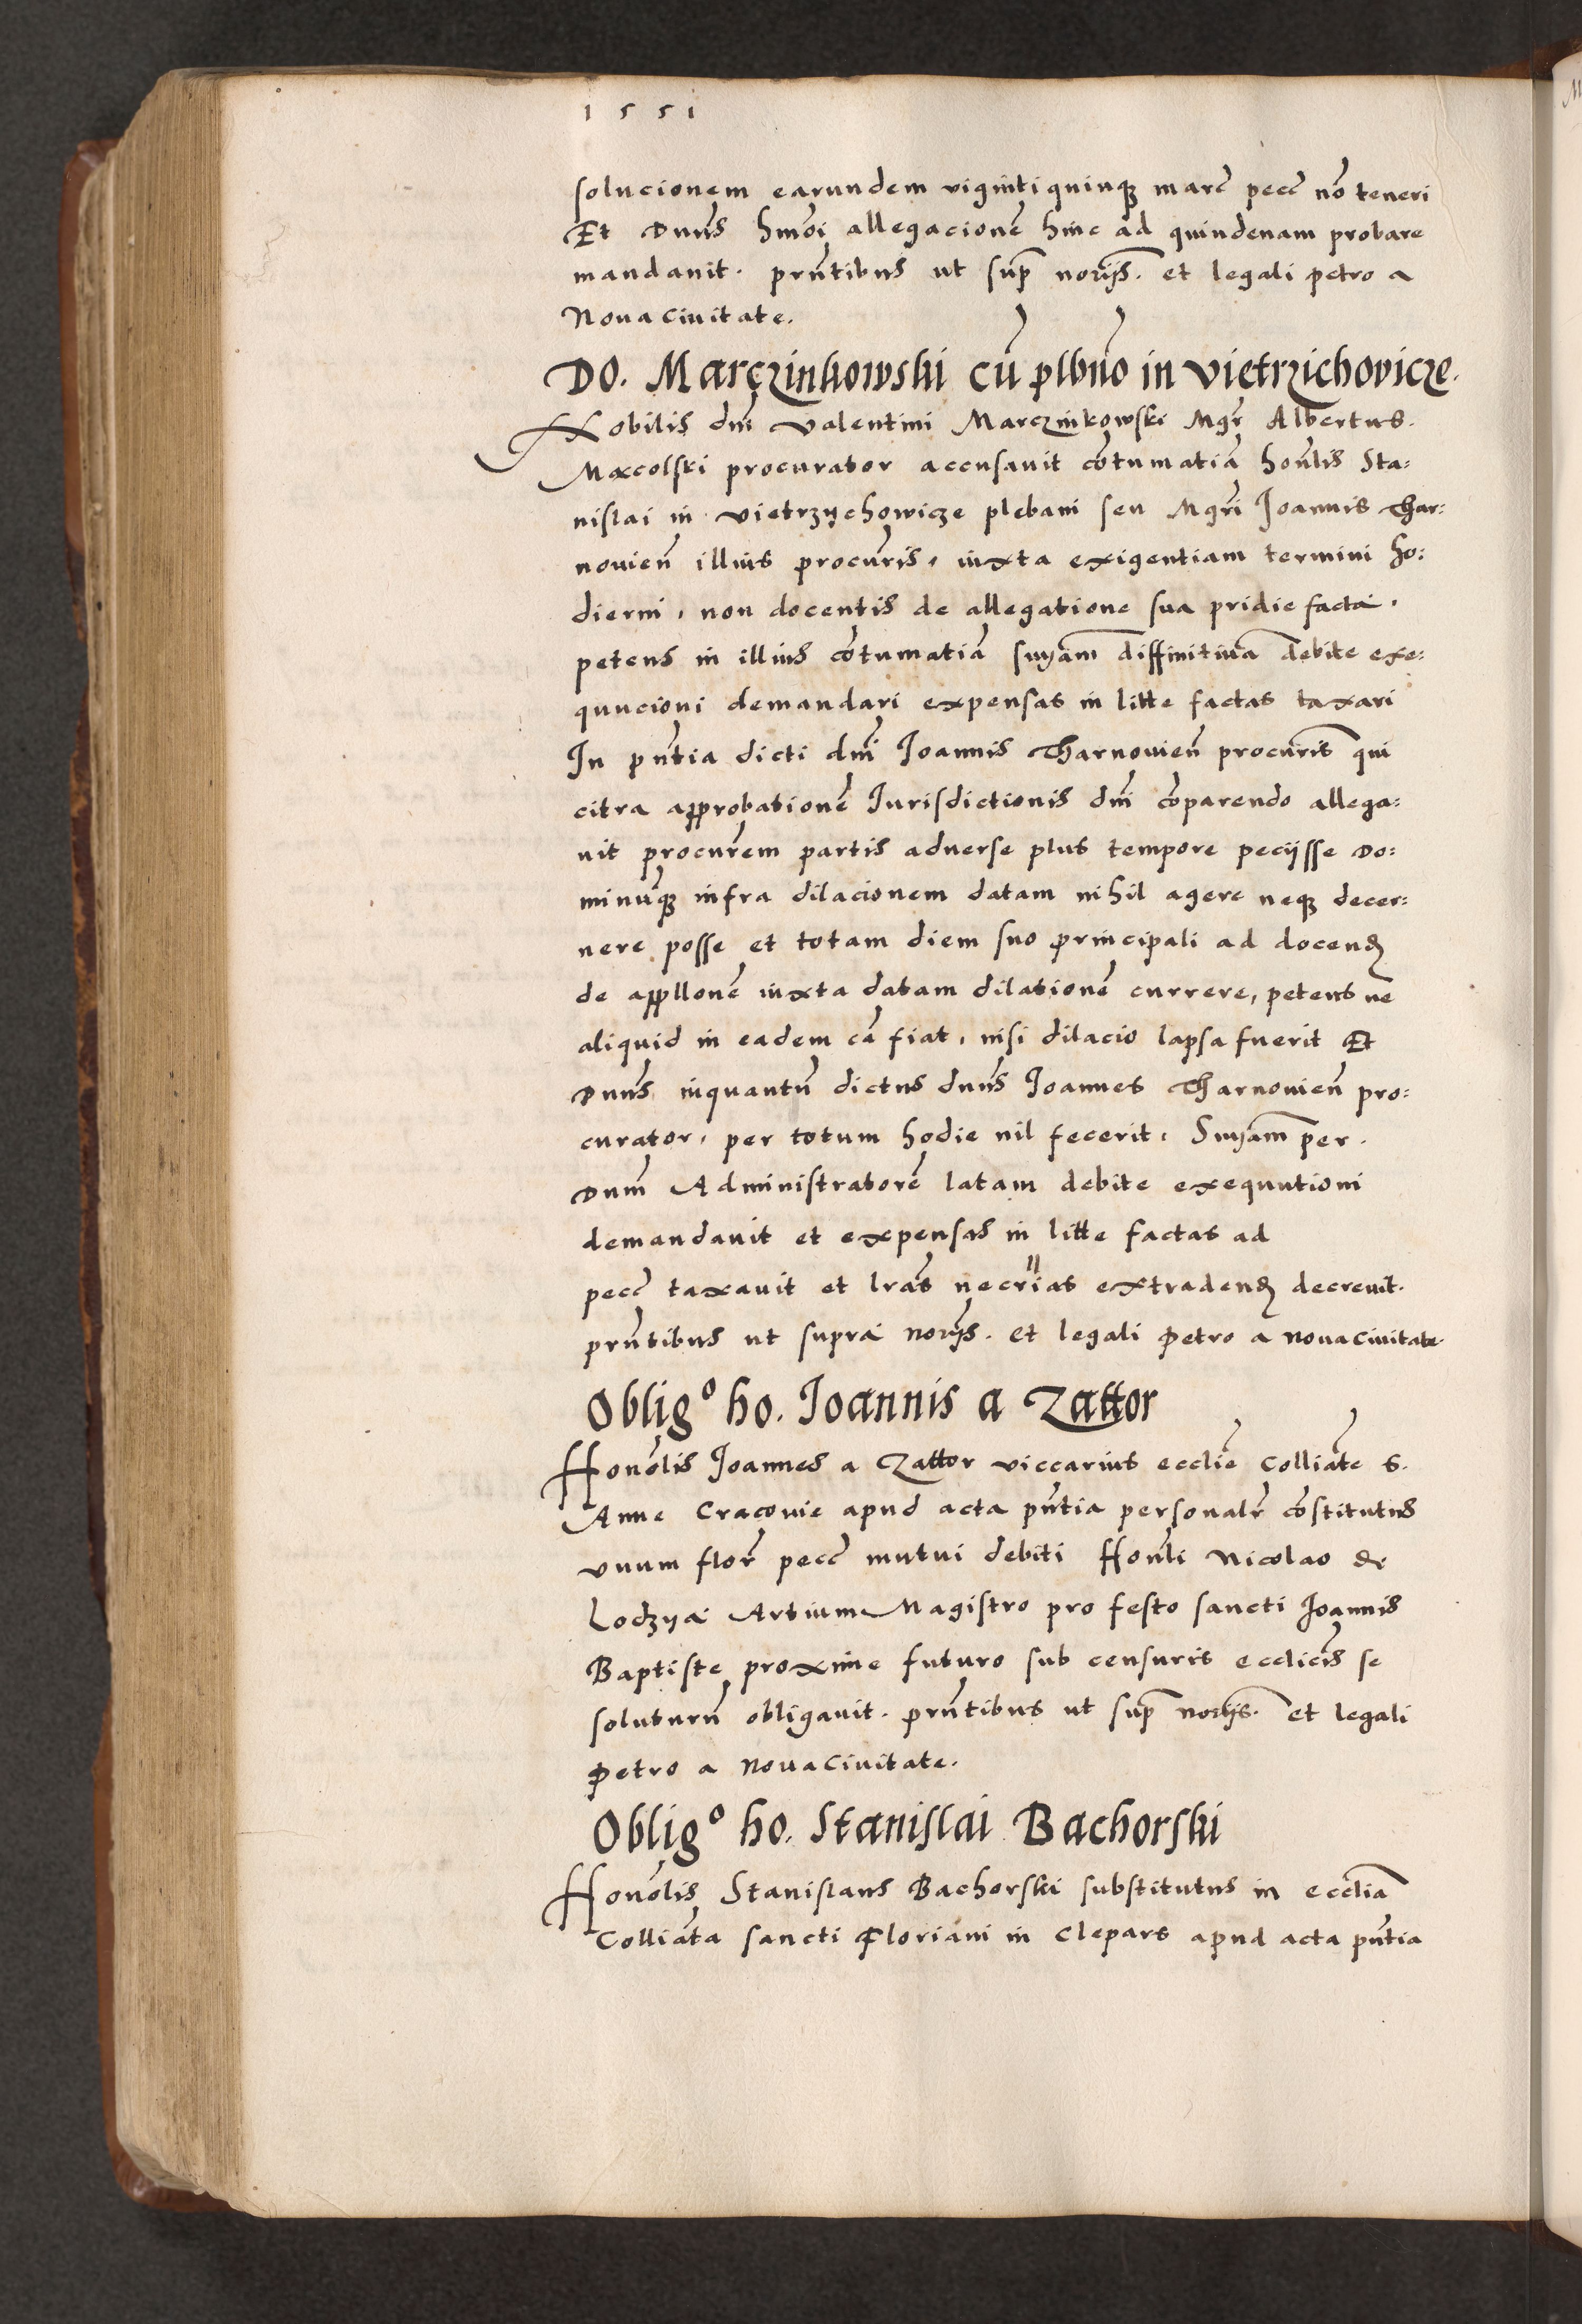 1551
solucionem earundem viginti quinqꝫ marc̃ pecc̃ nõ teneri
Et Dnus̃ hmõi allegacionẽ hinc ad quindenam probare
mandauit. pñtibus ut sup̃ norijs̃. et legali petro a
Noua Ciuitate.
DO. Marczinkowski cũ plbñо in Vietrzichovicze.
Nobilis dñi Valentini Marczinkowski Mgr̃ Albertus.
procurator accusauit cõtumatiã honl̃is Sta:
nislai in Vietrzychowicze plebani seu Mgri̇̃ Joannis Thar:
nouieñ illius procur̃is, iuxta exigentiam termini ho:
dierni, non docentis de allegatione sua pridie facta.
petens in illius cõtumatiã sniãm diffinitiuã debite exe:
quucioni demandari expensas in litte factas taxari
In pñtia dicti dñi Joannis Tharnouieñ procur̃is qui
citra approbationẽ Jurisdictionis dñi cõparendo allega:
uit procur̃em partis aduerse plus tempore pecijsse Do:
minũqꝫ infra dilacionem datam nihil agere neqꝫ decer:
nere posse et totam diem suo principali ad docenꝫ
de appllonẽ iuxta datam dilationẽ currere, petens ne
aliquid in eadem cã fiat, nisi dilacio lapsa fuerit Et
Dnus̃ inquantũ dictus dnus̃ Joannes Tharnouieñ pro:
curator, per totum hodie nil fecerit, Sniãm per.
Dnum̃ Administratorẽ latam debite exequutioni
demandauit et expensas in litte factas ad
pecc̃ taxauit et lrãs necr̃ias extradenꝫ decreuit.
pñtibus ut supra norijs̃. et legali Petro a Noua Ciuitate.
Obligº ho. Joannis a Zattor
Honõlis Joannes a Zattor viccarius ecclĩe Colliãte S.
Anne Cracouie apud acta pñtia personalr̃ cõstitutus
vnum flor̃ pecc̃ mutui debiti Honl̃i Nicolao de
Lodzya Artium Magistro pro festo sancti Joannis
Baptiste proxime futuro sub censuris ecclicis̃ se
soluturũ obligauit. pñtibus ut sup̃ norijs̃. et legali
Petro a Noua Ciuitate.
Obligº ho. Stanislai Bachorski
Honõlis Stanislaus Bachorski substitutus in ecclĩa
Colliãta sancti Floriani in Clepars apud acta pñtia